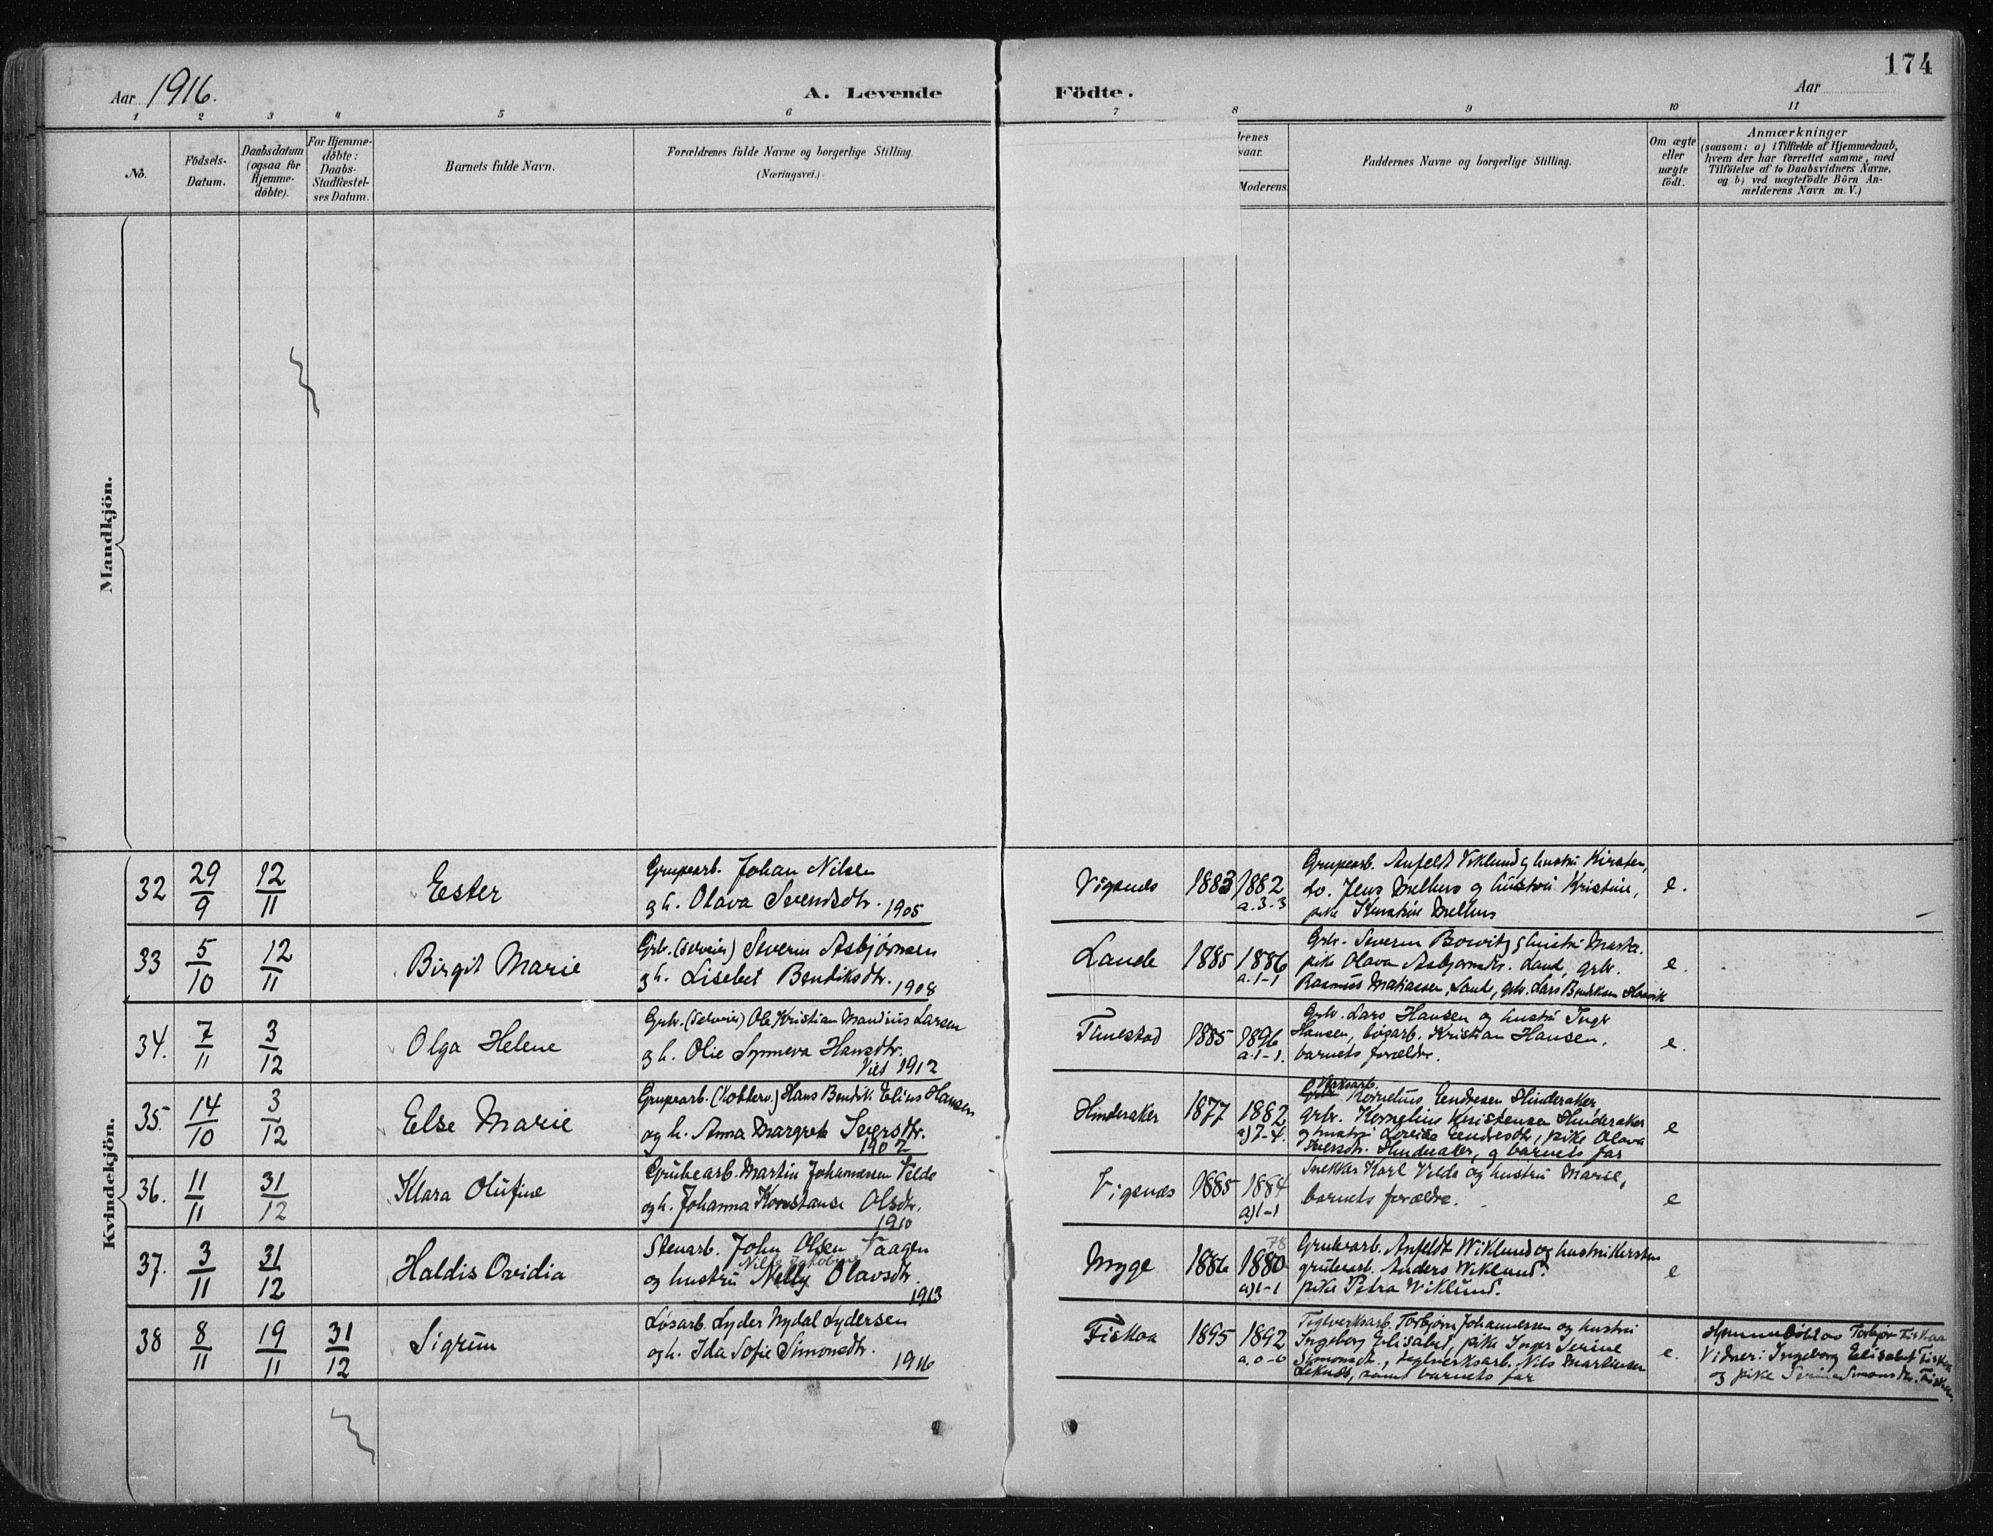 174
Aar 1916.
A. Levende Födte.
Aar
1 2 3 4 5 6 7 8 9 10 11
No.
Födsels-Datum.
Daabsdatum (ogsaa for Hjemme-döbte).
For Hjemme-döbte: Daabs-Stadfæstel-ses Datum.
Barnets fulde Navn.
Forældrenes fulde Navne og borgerlige Stilling.
(Næringsvei.)
drenes
saar.
Moderens.
Faddernes Navne og borgerlige Stilling.
Om ægte eller uægte født.
Anmærkninger
(saasom: a) i Tilfælde af Hjemmedaab,
hvem der har forrettet samme, med
Tilföielse af to Daabsvidners Navne,
og b) ved uægtefödte Börn An-
melderens Navn m. V.)
Mandkjön.
Kvindekjön.
32 29/9 12/11 Ester
Grupearb. Johan Nilsen
g h. Olava Svendsdtr. 1905
Vigsnes 1883 1882
a. 3-3
Grupearb. Anfeldt Viklund g hustru Kirsten,
do. Jens Melhus og hustru Kristine,
pike Melhus
e.
33 5/10 12/11 Birgit Marie
Grb. (selveier) Severin Asbjørnsen
g h. Lisebet Bendiksdtr. 1908
Lande 1885 1886
a. 1-1
Grb. Severin g hustru Marta.
pike Olava Asbjørnsdtr. Land, grb.
Rasmus Matiassen, Lande, grb. Lars Bendiksen
e.
34. 7/11 3/12 Olga Helene
Grb. (selveier) Ole Kristian Mandius Larsen
g h. Olie Synneva Hansdtr.
Viet 1912
1885 1896
a. 1-1.
Grb. Lars Hansen og hustru Inger
Hansen, løsarb. Kristian Hansen,
barnets forældre.
e.
35. 14/10 3/12 Else Marie
Grupearb. (Kobberv.) Hans Bendik Elius Hansen
og h. Anna Margreta Iversdtr.
1902
Hinderaker 1877 1882
a) 7-4.
Verksarb.
Kornelius Endresen Hinderaker
grb. Kornelius Kristensen Hinderaker
g hustru Lovise Endresdtr, pike Olava
Iversdtr. Hinderaker, g barnets far
e
36. 11/11 31/12 Klara Olufine
Grubearb. Martin Johannesen Velde
og h. Johanna Konstanse Olsdtr.
1910
Vigsnæs 1885 1884
a) 1-1
Snekker Karl Velde og hustru Marie,
barnets forældre.
e
37. 3/11 31/12 Haldis Ovidia
Stenarb. John Olsen Vaagen
og hustru Nelly Olavsdtr.
1913
Myge 1886 78
1880
a) 1-1
Grubearb. Anfeldt Wiklund og hustru Kirsten
grubearb. Anders Wiklund.
pike Petra Viklund.
e
38 8/11 19/11 31/12 Sigrun
Løsarb. Lyder Nydal Lydersen
og h. Ida Sofie Simonsdtr.
1916
Fiskaa 1895 1892
a. 0-0
Teglverksarb. Torbjørn Johannessen og hustru
Ingeborg Elisabet, pike Inger Serine
Simonsdtr., teglverksarb. Nils Martinsen
samt barnets far
e.
Hjemmedøbt av Torbjørn Fiskaa
Vidner: Ingeborg Elisabet Fiskaa
og pike Serine Simonsdtr. Fiskaa